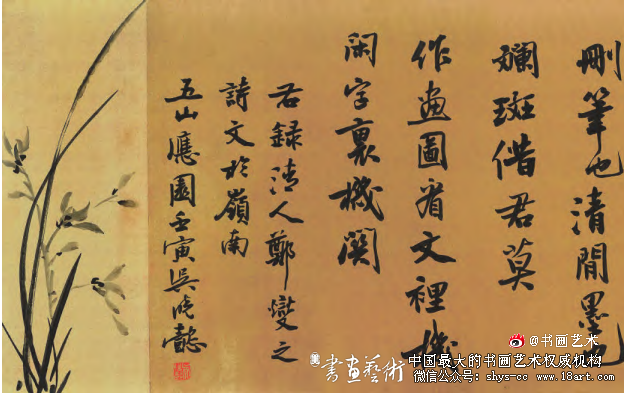 刪筆也清閒墨也
斕斑借君莫
作畫圖看文裡機
閑字裏機關
右錄清人鄭燮之
詩文於嶺南
五山應園壬寅吳曉懿
@书画艺术
書畫藝術
中国最大的书画艺术权威机构
微信公众号：shys-cc www.18art.com